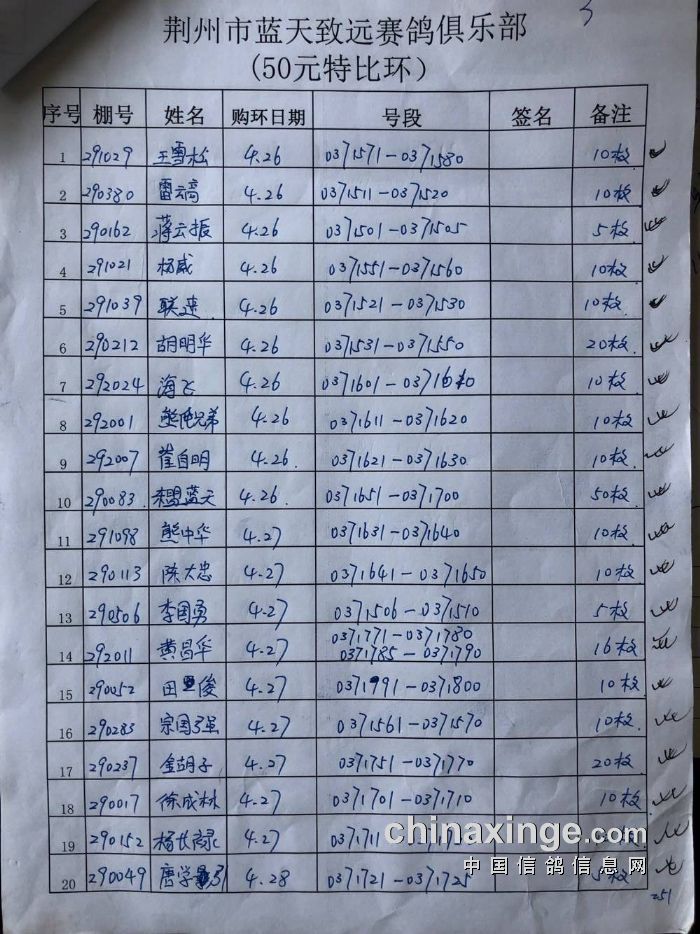 3
荆州市蓝天致远赛鸽俱乐部
(50元特比环)
序号 棚号 姓名 购环日期 号段 签名 备注
1 291029 王雪松 4.26 0371571-0371580 10枚
2 290380 雷云高 4.26 0371511-0371520 10枚
3 290162 蒋云振 4.26 0371501-0371505 5枚
4 291021 杨威 4.26 0371551-0371560 10枚
5 291039 联建 4.26 0371521-0371530 10枚
6 290212 胡明华 4.26 0371531-0371550 20枚
7 292024 海飞 4.26 0371601-0371610 10枚
8 292001 熊 兄弟 4.26 0371611-0371620 10枚
9 292007 崔自明 4.26 0371621-0371630 10枚
10 290083 盟蓝天 4.26 0371651-0371700 50枚
11 291098 熊中华 4.27 0371631-0371640 10枚
12 290113 陈大忠 4.27 0371641-0371650 10枚
13 290506 李国勇 4.27 0371506-0371510 5枚
14 292011 黄昌华 4.27 0371771-0371780 16枚
0371785-0371790
15 290052 田 俊 4.27 0371791-0371800 10枚
16 290283 宗国强 4.27 0371561-0371570 10枚
17 290237 金胡子 4.27 0371751-0371770 20枚
18 290017 徐成林 4.27 0371701-0371710 10枚
19 290152 杨长禄 4.27 0371711 枚
20 290049 唐学 4.28 0371721-0371725 5枚
chinaxinge.com
中国信鸽信息网
251